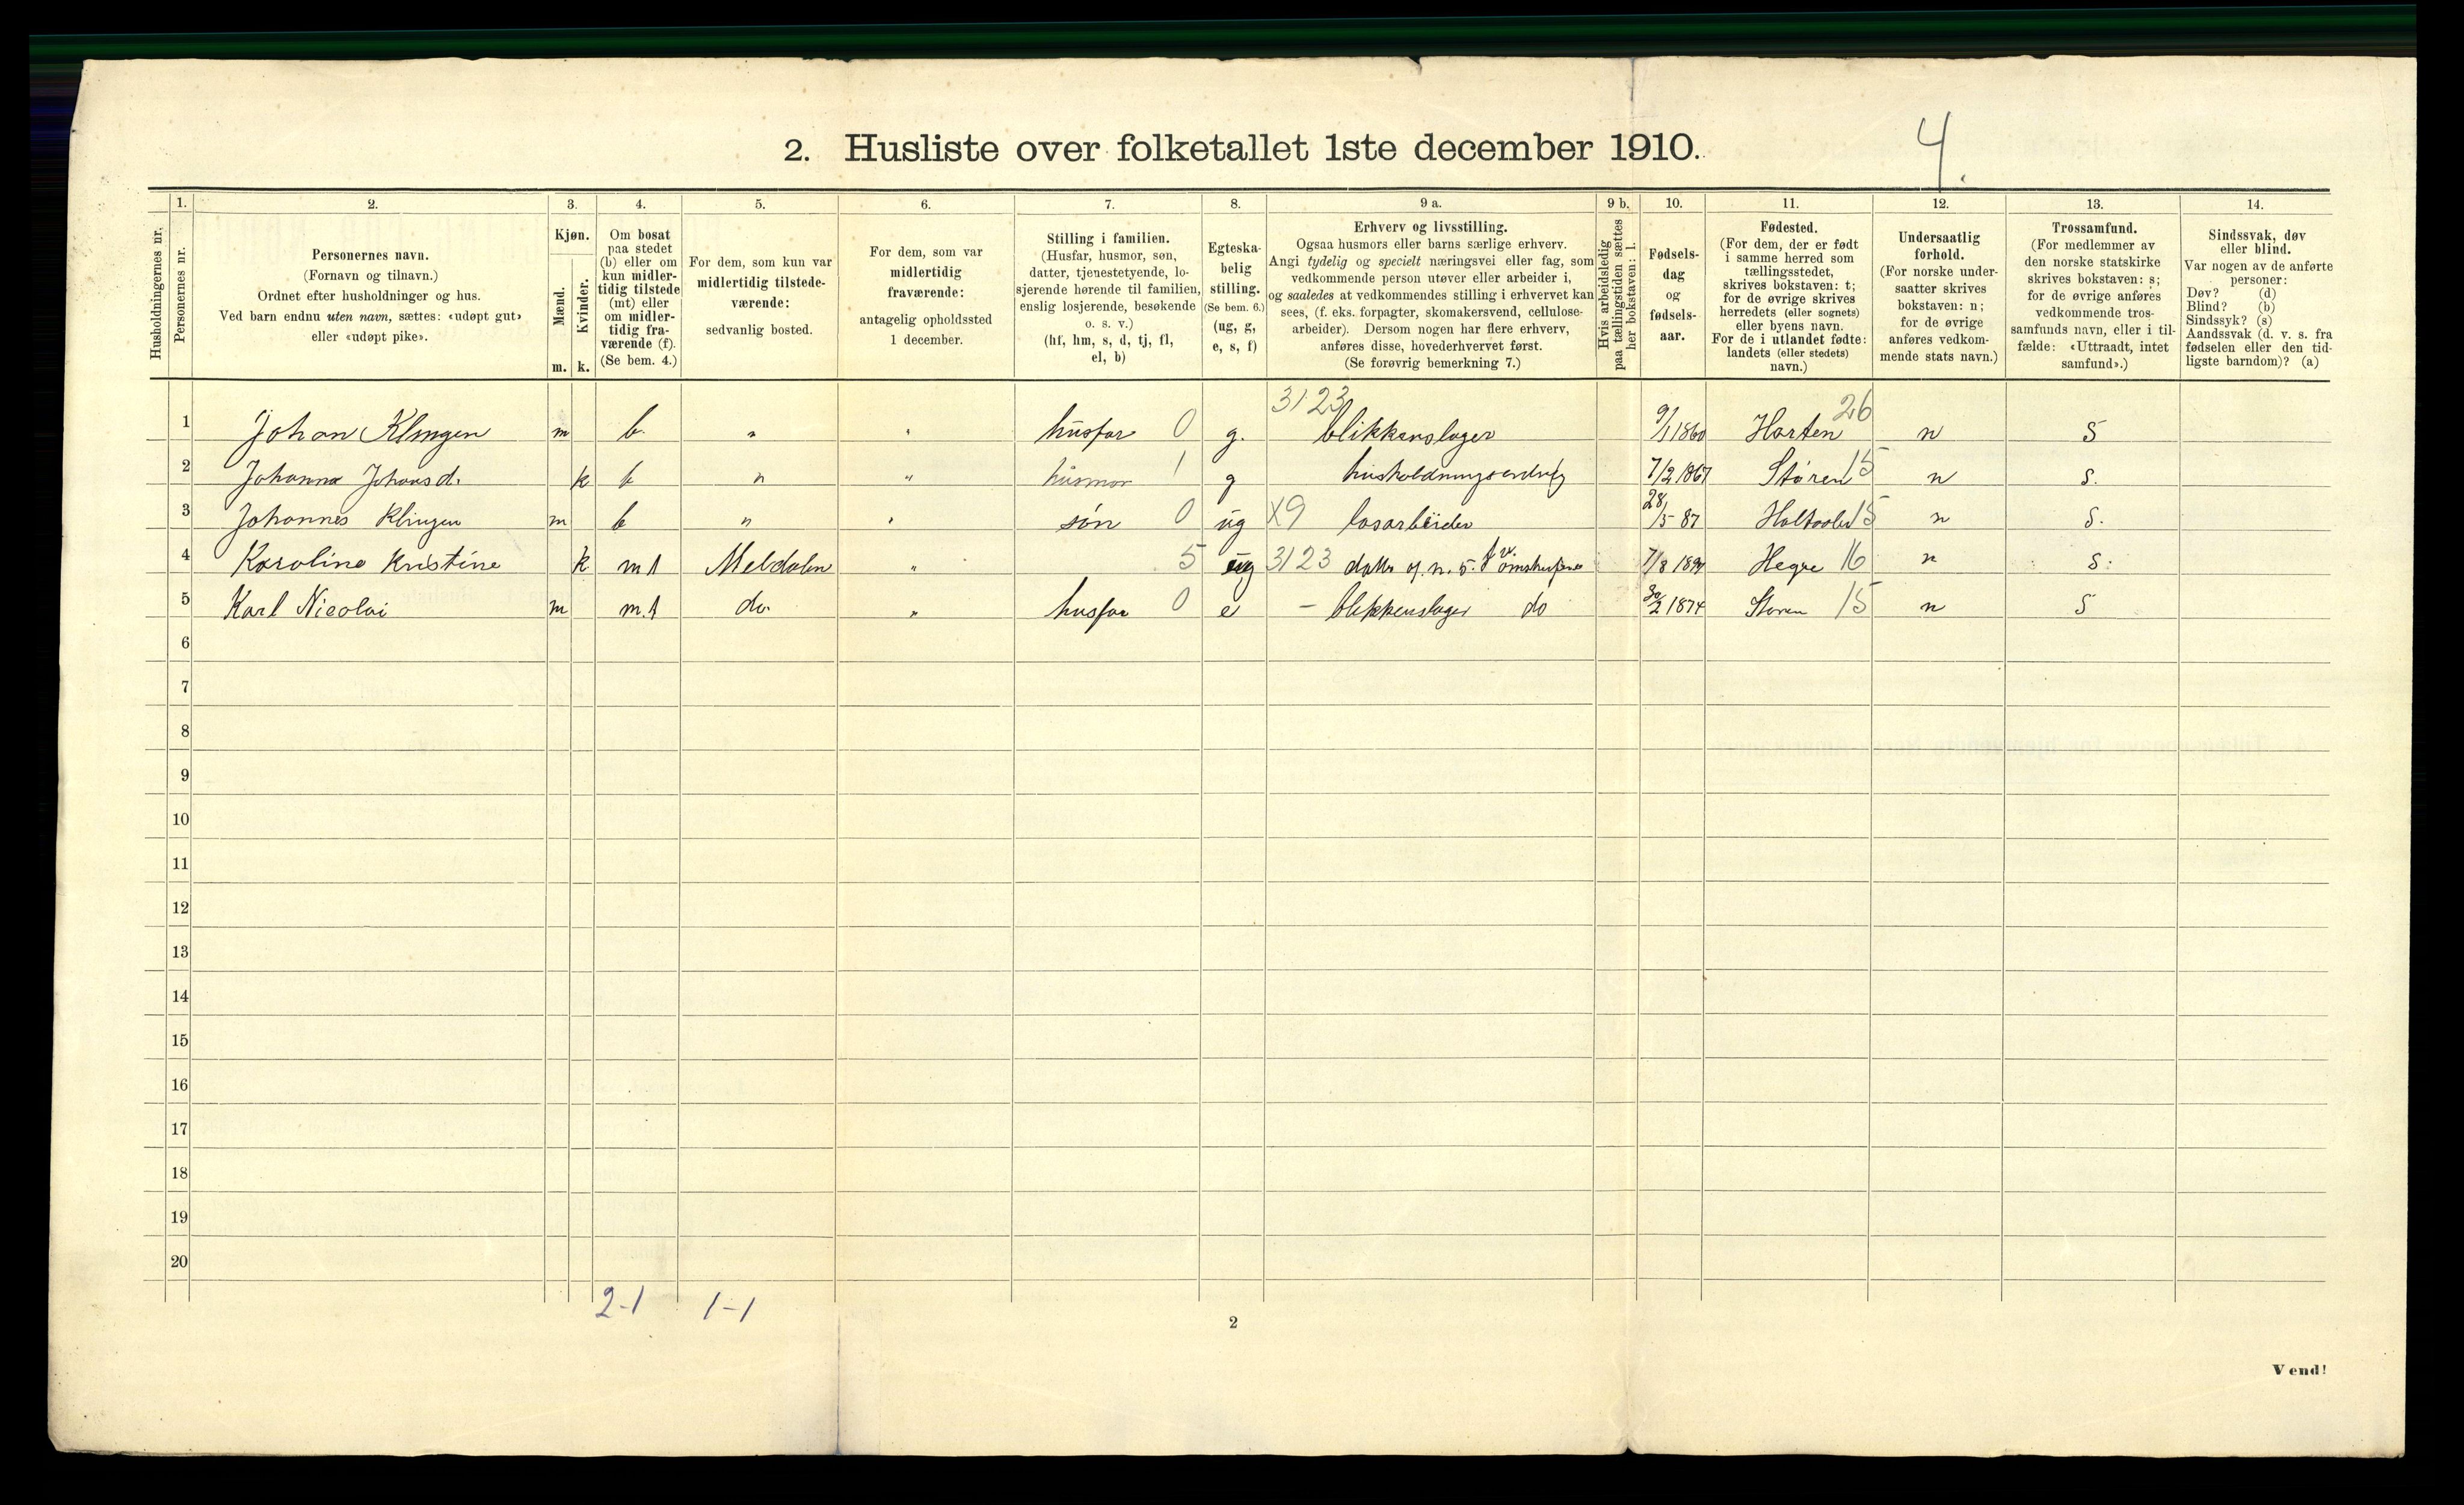 4.
2. Husliste over folketallet 1ste december 1910.
Husholdningernes nr.
1.
Personernes nr.
2.
Personernes navn.
(Fornavn og tilnavn.)
Ordnet efter husholdninger og hus.
Ved barn endnu uten navn, sættes: «udøpt gut»
eller «udøpt pike».
3.
Kjøn.
Mænd.
Kvinder.
m. k.
4.
Om bosat
paa stedet
(b) eller om
kun midler-
tidig tilstede
(mt) eller
om midler-
tidig fra-
værende (f).
(Se bem. 4.)
5.
For dem, som kun var
midlertidig tilstede-
værende:
sedvanlig bosted.
6.
For dem, som var
midlertidig
fraværende:
antagelig opholdssted
1 december.
7.
Stilling i familien.
(Husfar, husmor, søn,
datter, tjenestetyende, lo-
sjerende hørende til familien,
enslig losjerende, besøkende
o. s. v.)
(hf, hm, s, d, tj, fl,
el, b)
8.
Egteska-
belig
stilling.
(Se bem. 6.)
(ug, g,
e, s, f)
9 a.
Erhverv og livsstilling.
Ogsaa husmors eller barns særlige erhverv.
Angi tydelig og specielt næringsvei eller fag, som
vedkommende person utøver eller arbeider i,
og saaledes at vedkommendes stilling i erhvervet kan
sees, (f. eks. forpagter, skomakersvend, cellulose-
arbeider). Dersom nogen har flere erhverv,
anføres disse, hovederhvervet først.
(Se forøvrig bemerkning 7.)
9 b.
Hvis arbeidsledig
paa tællingstiden sættes
her bokstaven: l.
10.
Fødsels-
dag
og
fødsels-
aar.
11.
Fødested.
(For dem, der er født
i samme herred som
tællingsstedet,
skrives bokstaven: t;
for de øvrige skrives
herredets (eller sognets)
eller byens navn.
For de i utlandet fødte:
landets (eller stedets)
navn.)
12.
Undersaatlig
forhold.
(For norske under-
saatter skrives
bokstaven: n;
for de øvrige
anføres vedkom-
mende stats navn.)
13.
Trossamfund.
(For medlemmer av
den norske statskirke
skrives bokstaven: s;
for de øvrige anføres
vedkommende tros-
samfunds navn, eller i til-
fælde: «Uttraadt, intet
samfund».)
14.
Sindssvak, døv
eller blind.
Var nogen av de anførte
personer:
Døv? (d)
Blind? (b)
Sindssyk? (s)
Aandssvak (d. v. s. fra
fødselen eller den tid-
ligste barndom)? (a)
1 Johan Klingen m b. " " husfar 0 g. 3123 blikkenslager 9/1 1860 Harten 26 n S
2 Johanna Johansd. k b " " husmor 1 g 7/2 1867 Støren 15 n S.
3 Johannes Klingen m b " " søn 0 ug X9 løsarbeider 28/5 87 15 n S.
4 Karoline Kristine k mt Meldalen " 5 ug 3123 datter af n. 5. 7/8 Hegre 16 n S.
5 Karl Nicolai m m.t do " husfar 0 e – blikkenslager do 1874 Støren 15 n S
6
7
8
9
10
11
12
13
14
15
16
17
18
19
20
2-1 1-1
2
Vend!